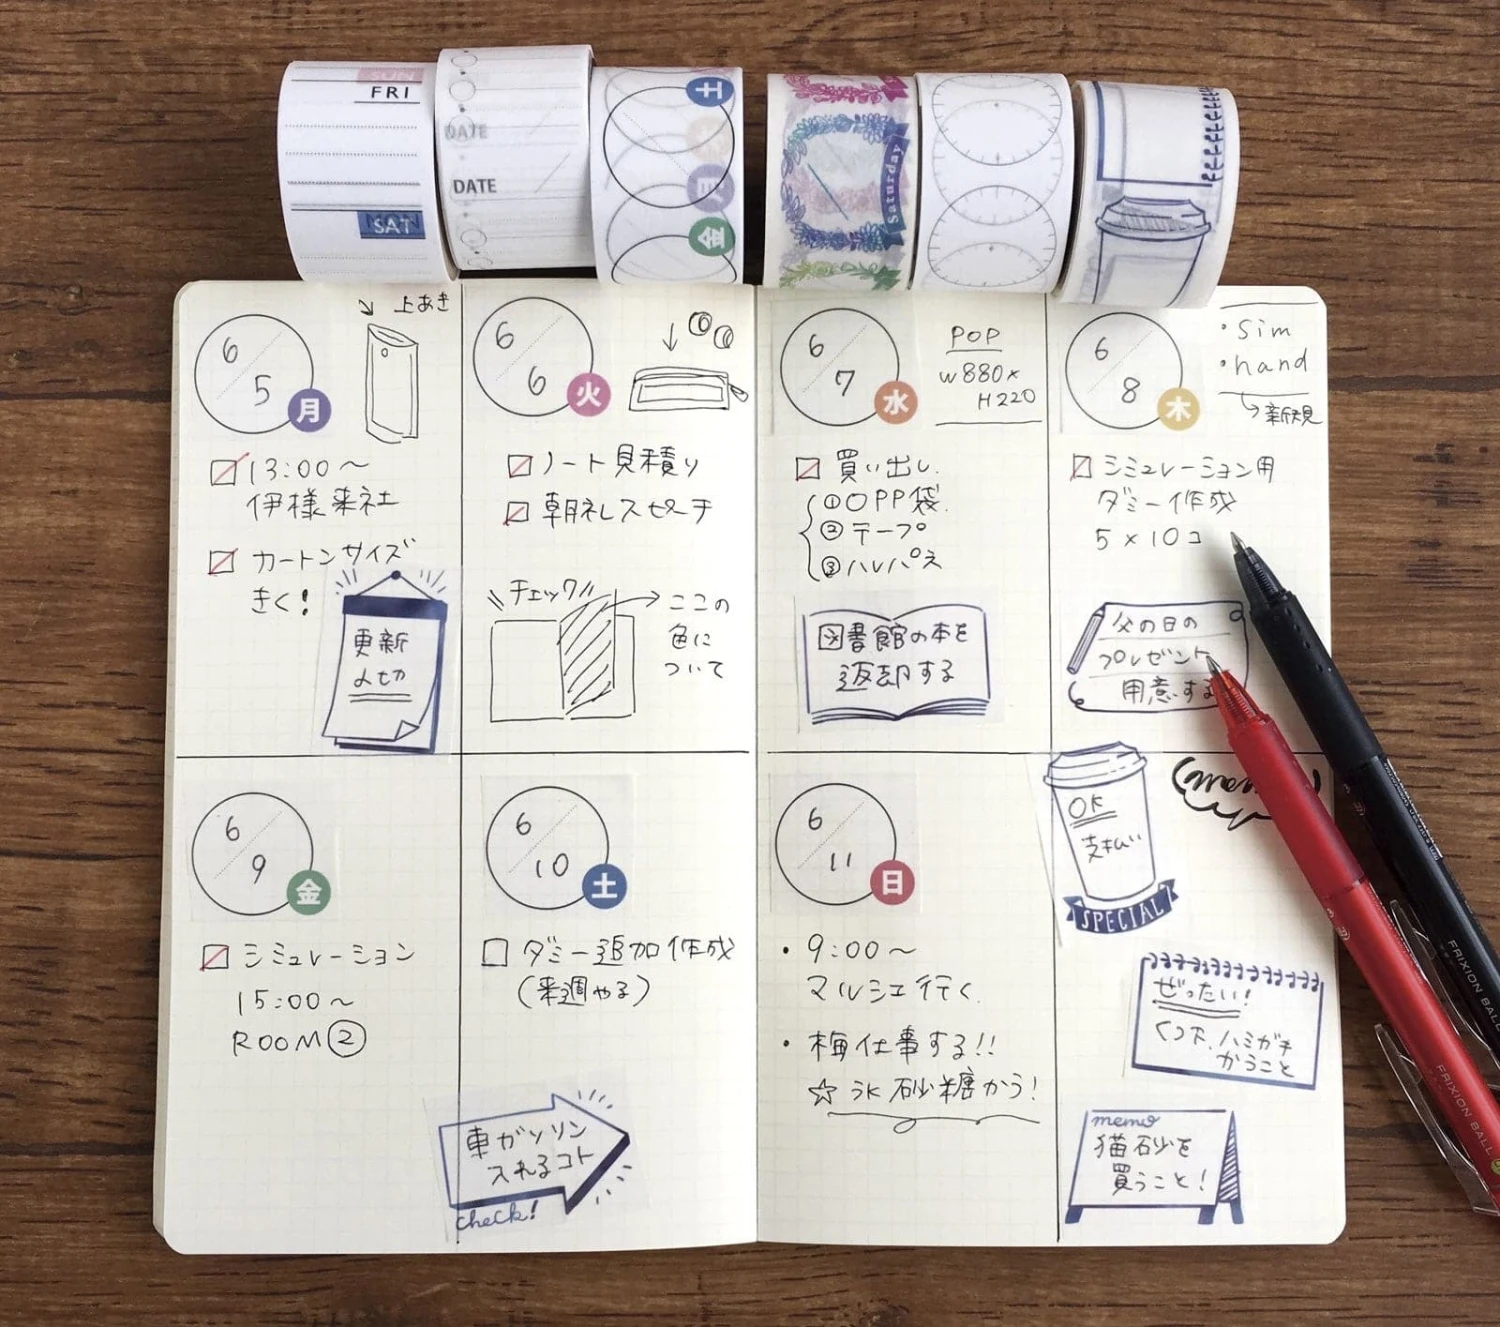 SUN
FRI
SAT
DATE
DATE
土
金
Saturday
6/5 月
上あき
13:00～
伊様来社
カートンサイズ
きく！
更新
〆切
6/6 火
ノート見積り
朝礼スピーチ
チェック
ここの
色に
ついて
6/7 水
POP
W880×
H220
買い出し
①OPP袋
②テープ
③ハレパネ
図書館の本を
返却する
6/8 木
・Sim
・hand
新規
シミュレーション用
ダミー作成
5×10コ
父の日の
プレゼント
用意する
6/9 金
シミュレーション
15:00～
ROOM②
6/10 土
ダミー追加作成
(来週やる)
車ガソリン
入れるコト
check!
6/11 日
・9:00～
マルシェ行く
・梅仕事する!!
☆氷砂糖かう!
OK
支払い
SPECIAL
ぜったい!
くつ下、ハミガキ
かうこと
memo
猫砂を
買うこと!
FRIXION BALL
FRIXION BALL